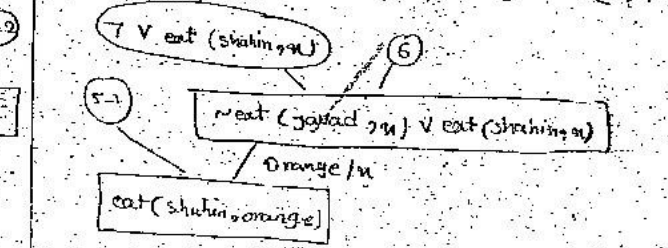 7 V eat (shahin, x)
6
5-1
~eat (jawad, x) V eat (shahin, x)
Orange/x
eat (shahin, orange)